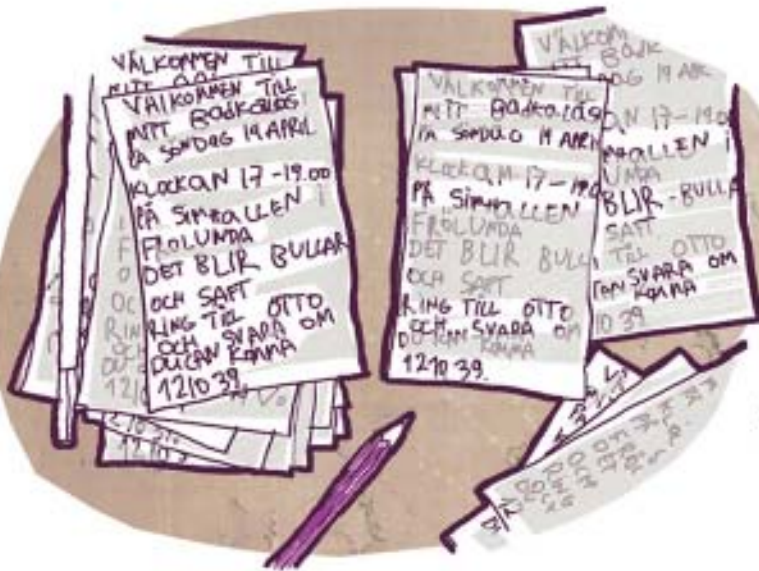 VÄLKOMMEN TILL
VÄLKOMMEN TILL
MITT BADKALAS
PÅ SÖNDAG 19 APRIL
KLOCKAN 17-19.00
PÅ SIMHALLEN I
FRÖLUNDA
DET BLIR BULLAR
OCH SAFT
RING TILL OTTO
OCH SVARA OM
DU CAN KOMMA
121039
VÄLKOMMEN TILL
MITT BADKALAS
PÅ SÖNDAG 19 APRIL
KLOCKAN 17-19.0
PÅ SIMHALLEN
FRÖLUNDA
DET BLIR BULL
OCH SAFT
RING TILL OTTO
OCH SVARA OM
DU CAN KOMMA
121039.
VÄLKOM
BADK
DAG 19 APR
AN 17-19.0
HALLEN I
UNDA
BLIR-BULLA
SAFT
TILL OTTO
SVARA OM
KOMMA
10 39